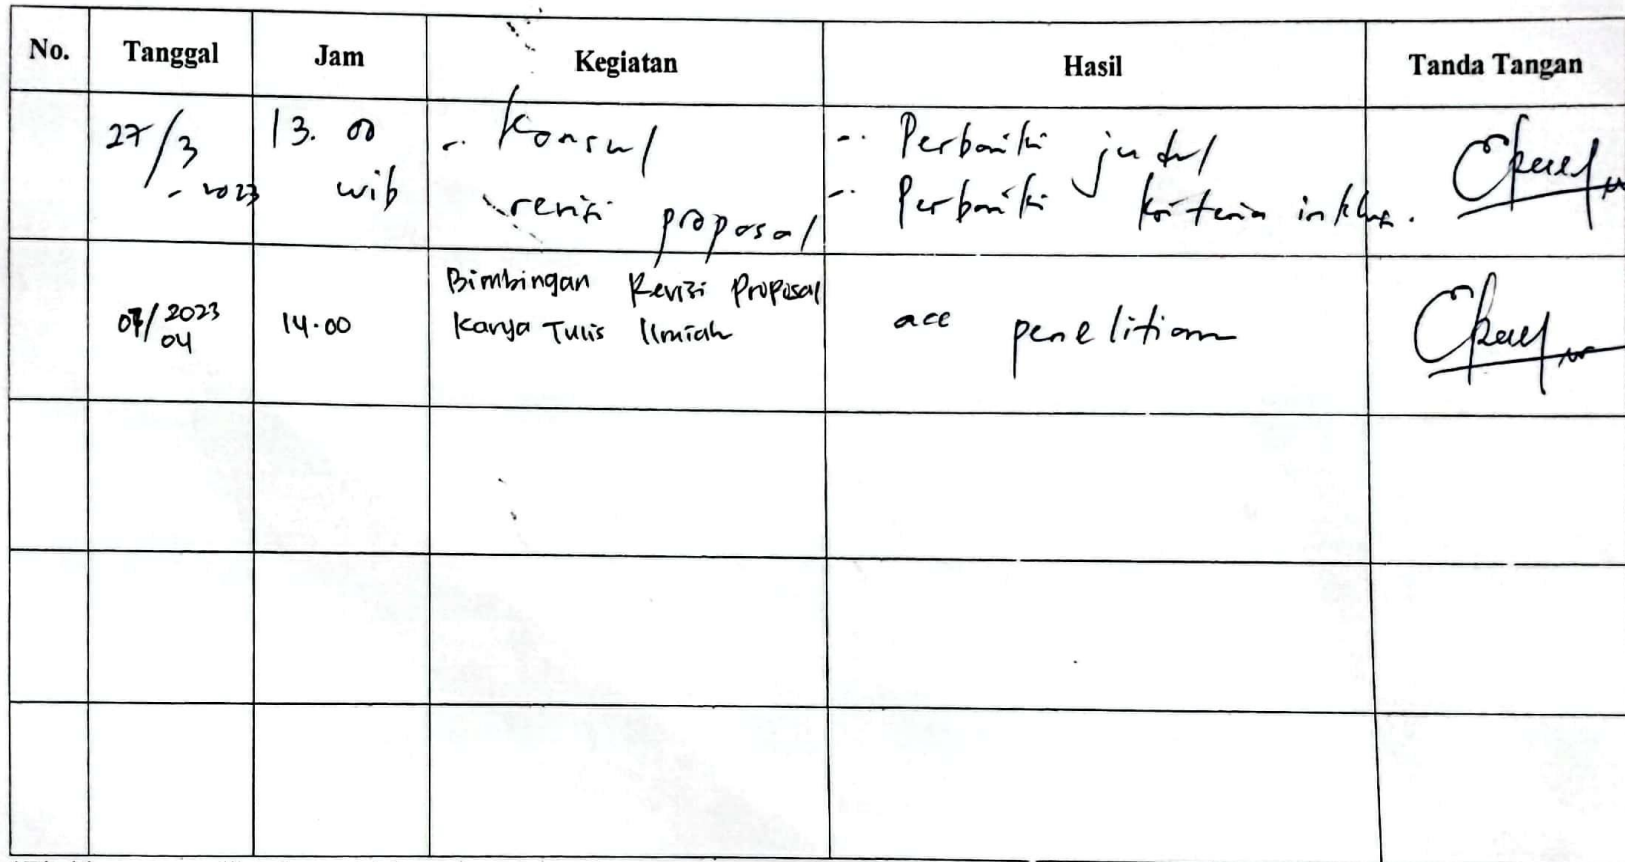 No. Tanggal Jam Kegiatan Hasil Tanda Tangan
27/3 - 2023 13.00 wib - Konsul revisi proposal - Perbaiki judul
- Perbaiki kriteria inklusi.
04/2023 14.00 Bimbingan Revisi Proposal
Karya Tulis Ilmiah acc penelitian